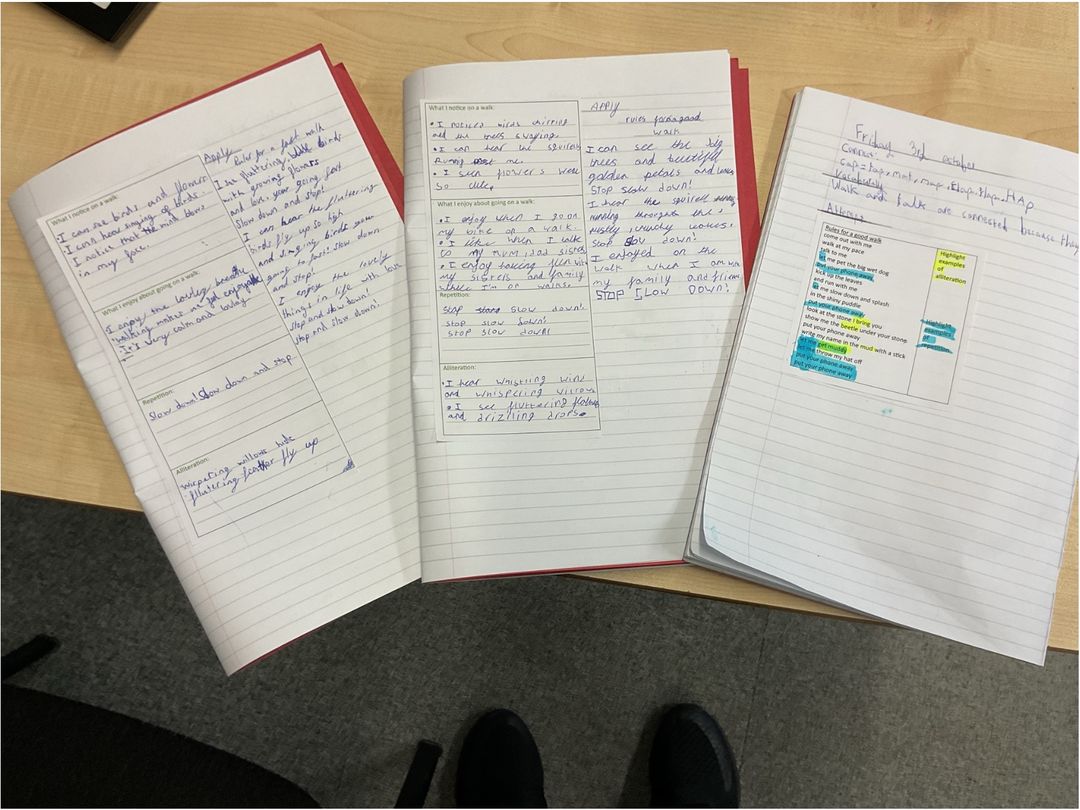 What I notice on a walk:
I can see birds and flower
I can hear sing of birds.
I notice that the mind
in may
What I enjoy about going on a walk:
I enjoy the lovley breathe
walking makes a
It's very calm and loving
Repetition:
Slow down! Slow down and stop.
Alliteration:
willows
fluttering fly up
Apply
Rules for a walk
I see fluttering birds
with growing flowers
and love your going fast
Slow down and stop!
I can hear the fluttering
birds fly up so high
and singing birds
going to fast! slow down
and stop!
I enjoy the lovely
things in life with love
stop and slow down!
stop and slow down!
What I notice on a walk:
• I noticed birds chirring
and the trees swaying.
• I can hear the squirels
runing me.
• I seen flowers were
so
What I enjoy about going on a walk:
• I enjoy when I go on
my bike on a walk.
• I like when I walk
to my mum, dad sisters
• I enjoy having fun with
my sisters and family
while I'm on walks.
Repetition:
stop slow down!
stop slow down!
stop slow down!
Alliteration:
• I hear whistling wind
and whispering willows
• I see fluttering
and drizzling drops.
APPLY
rules for a good
walk
I can see the big
trees and beutiful
golden petals and leaves
STOP slow down!
I hear the squirell
running throught the
crunchy leaves.
Stop Slow down!
I enjoyed on the
walk when I am with
my family and
STOP SLOW DOWN!
Friday 3rd october
Connect:
cap= tap, mat, map, flap, Hap
Vocabulary
Walk and talk are connected because they
Attempt
Rules for a good walk
come out with me
walk at my pace
talk to me
let me pet the big wet dog
put your phone away
kick up the leaves
end run with me
let me slow down and splash
in the shiny puddle
put your phone away
look at the stone I bring you
show me the beetle under your stone
put your phone away
write my name in the mud with a stick
let me get muddy
let me throw my hat off
put your phone away
put your phone away
Highlight
examples
of
alliteration
Highlight
examples
of
repetition